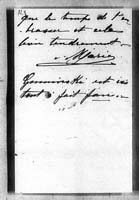 que le temps de t'em
brasser et cela
bien tendrement.
Marie
est ici
tout à fait